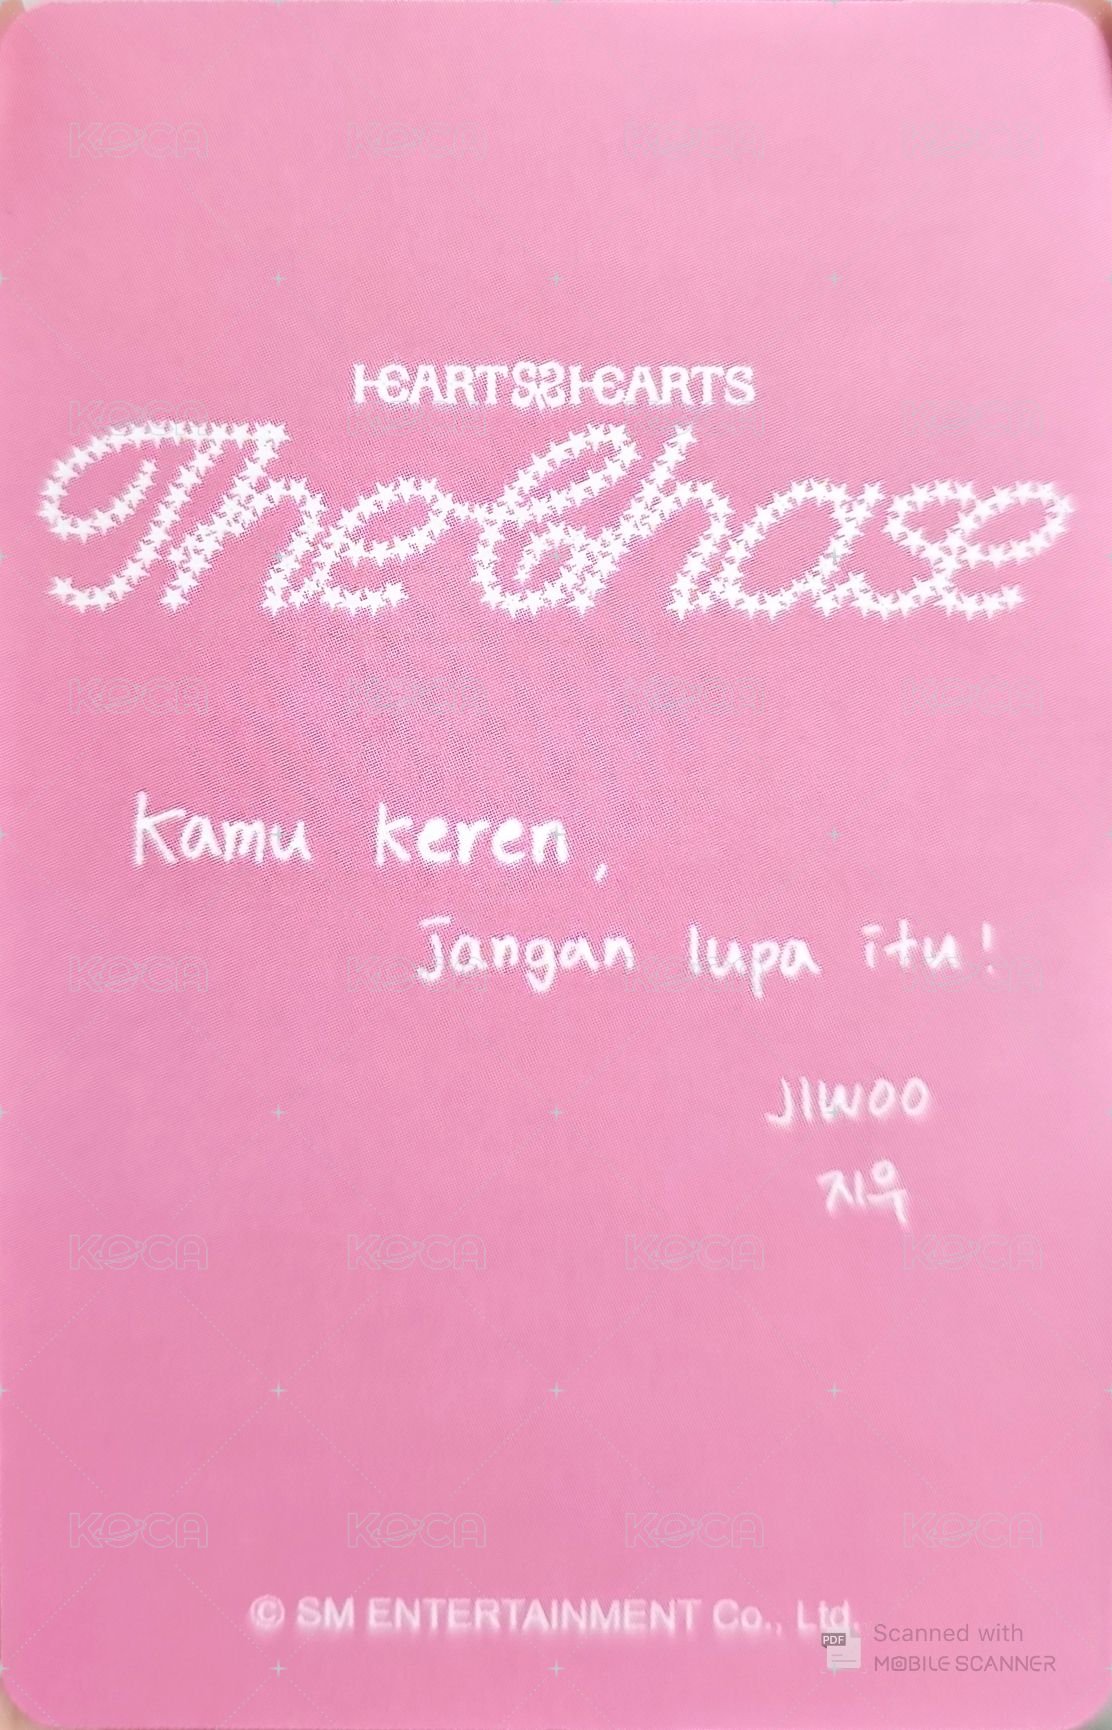 HEARTS2HEARTS
The Chase
Kamu keren,
Jangan lupa itu!
JIWOO
지우
© SM ENTERTAINMENT Co., Ltd.
PDF
Scanned with
MOBILE SCANNER
KOCA KOCA KOCA KOCA
KOCA KOCA KOCA KOCA
KOCA KOCA KOCA KOCA
KOCA KOCA KOCA KOCA
KOCA KOCA KOCA KOCA
KOCA KOCA KOCA KOCA